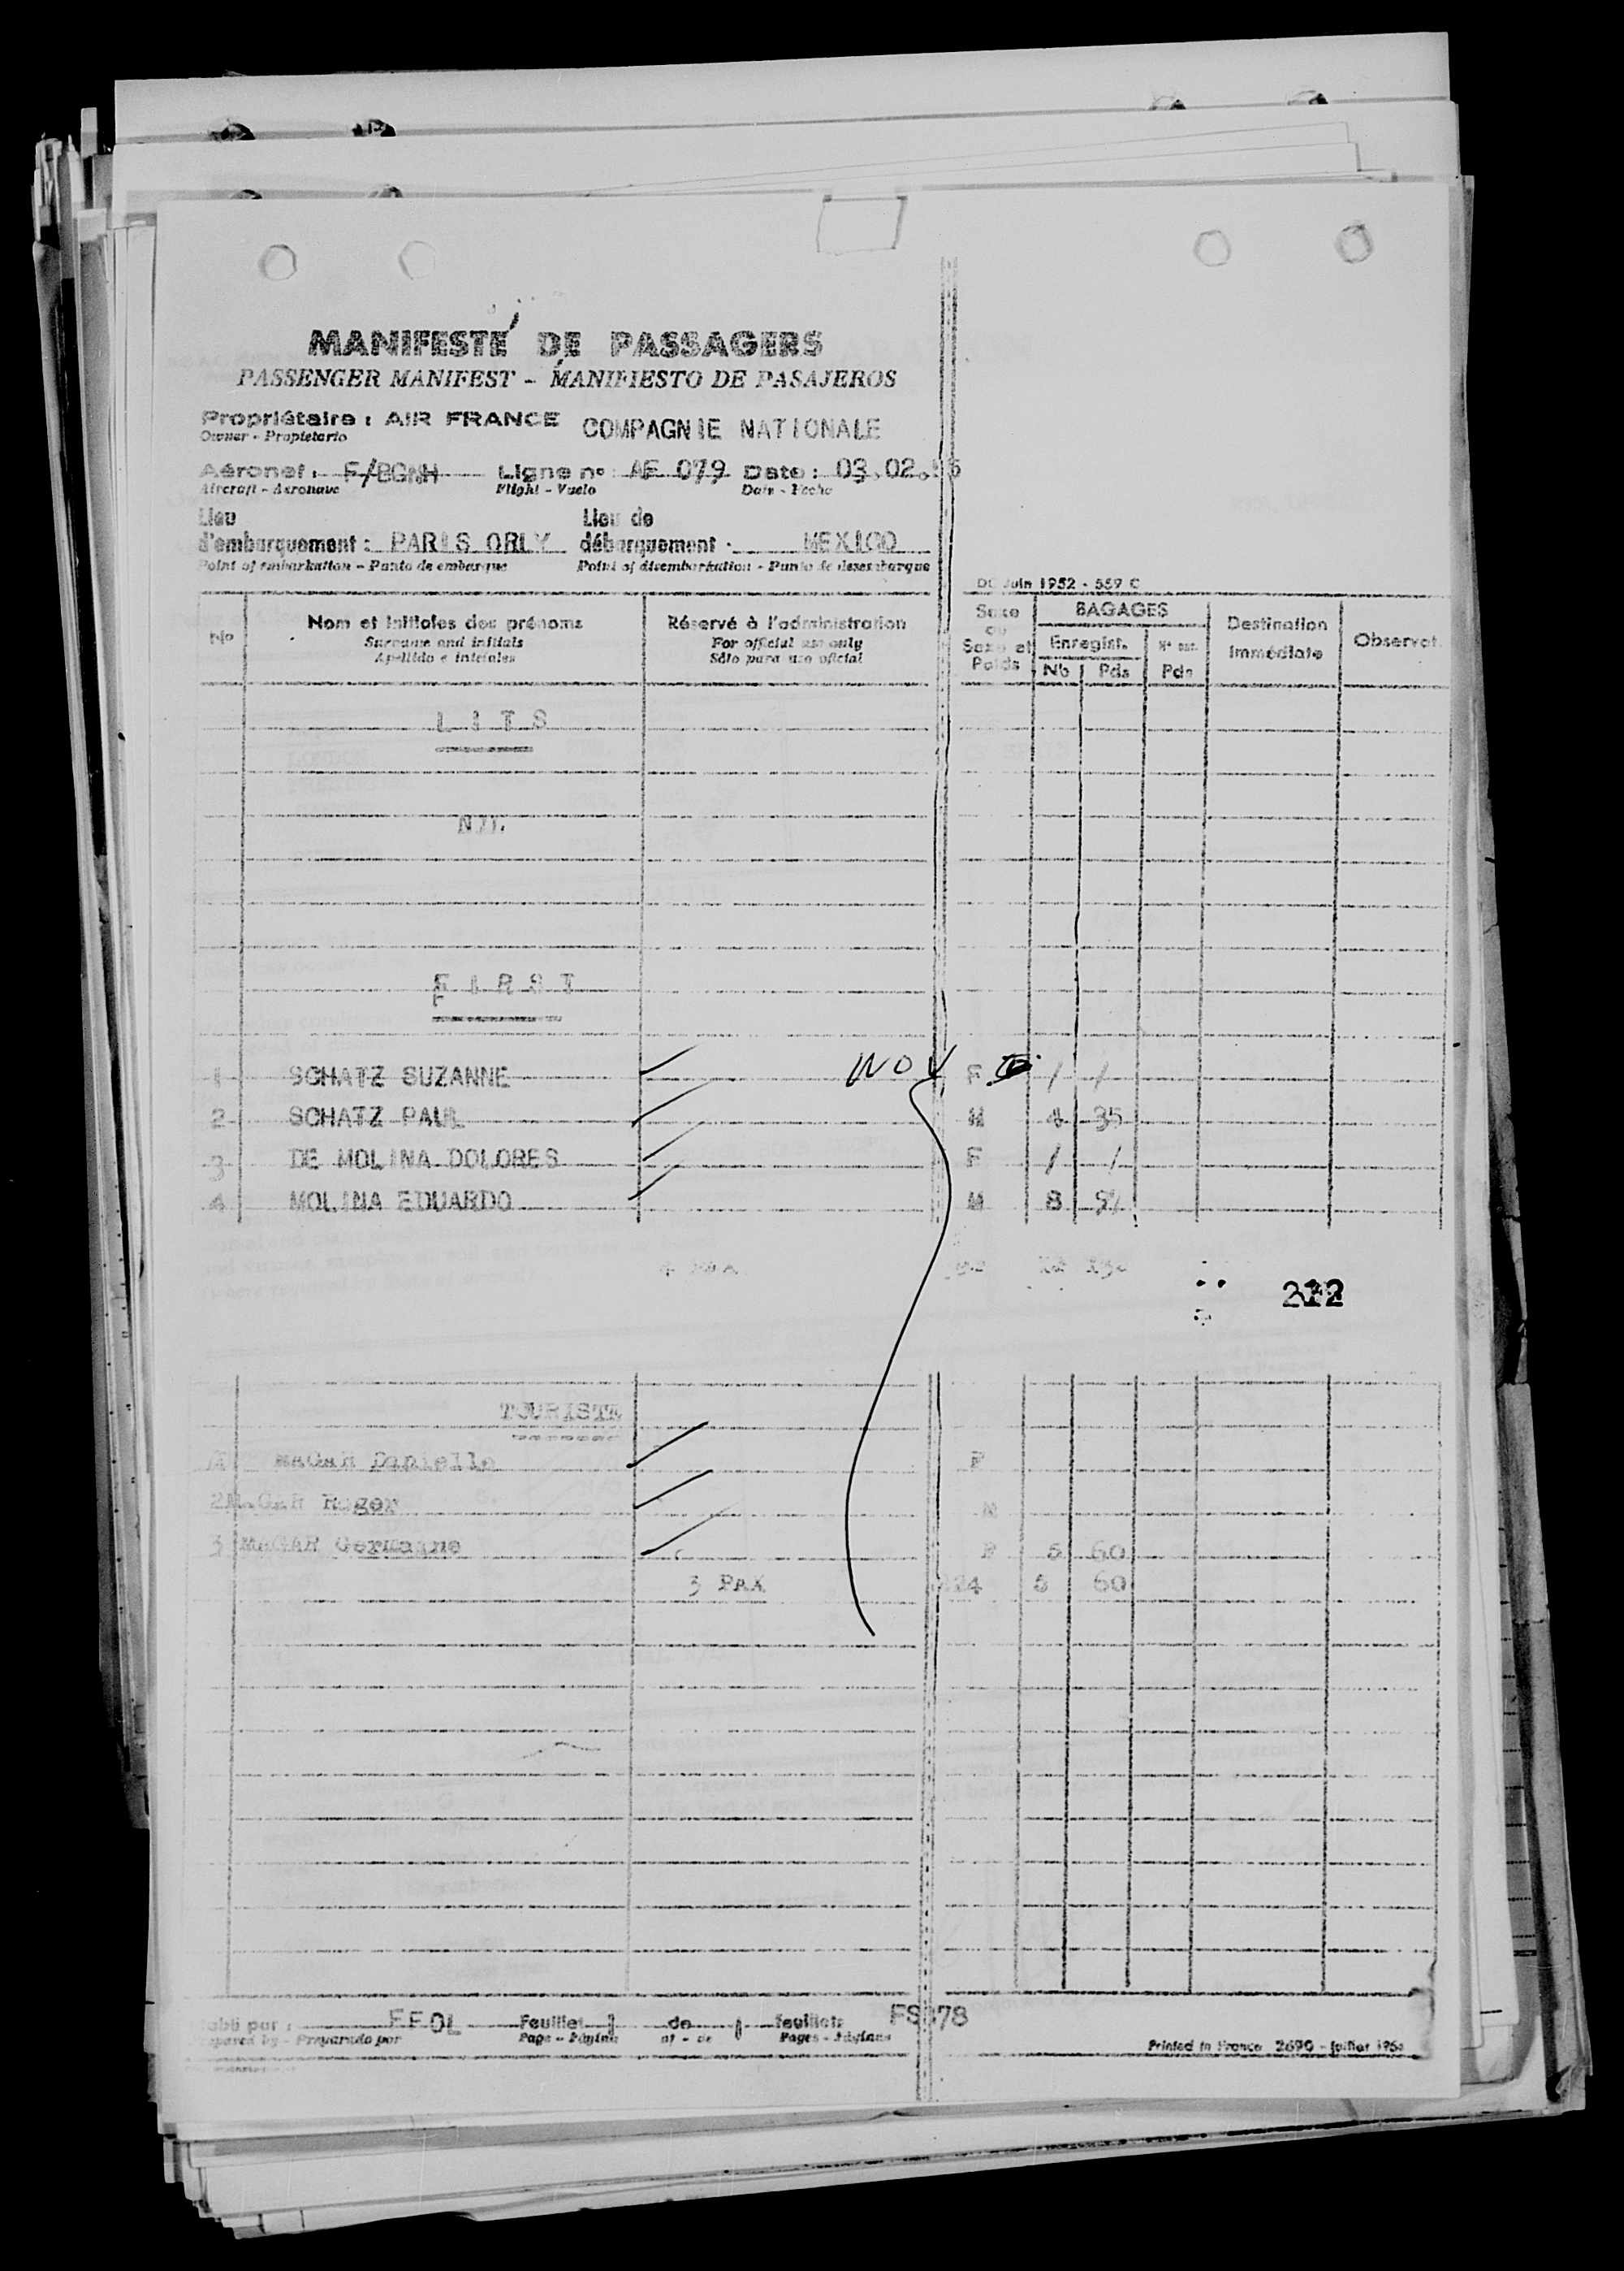 MANIFESTE DE PASSAGERS
PASSENGER MANIFEST - MANIFIESTO DE PASAJEROS
Propriétaire : AIR FRANCE COMPAGNIE NATIONALE
Owner - Propietario
Aéronef : F/BGNH Ligne n° AF 079 Date : 03.02.
Aircraft - Aeronave Flight - Vuelo Date - Fecha
Lieu Lieu de
d'embarquement : PARIS ORLY débarquement : MEXICO
Point of embarkation - Punto de embarque Point of disembarkation - Punto de desembarque
Juin 1952 - 559 C
N° Nom et initiales des prénoms Réservé à l'administration Sexe ou Sexe et Poids BAGAGES Destination immédiate Observat.
Surname and initials For official use only Enregist.
Apellido e iniciales Sólo para uso oficial Nb Pds Pds
LITS
FIRST
1 SCHATZ SUZANNE NOV F / /
2 SCHATZ PAUL M 4 35
3 DE MOLINA DOLORES F / /
4 MOLINA EDUARDO M 8
TOURISTE
MAGAR Danielle F
2 MAGAR Roger M
3 MAGAR Germaine F 5 60
3 PAX 5 60
Feuillet 1 de 1 feuillets
Prepared by - Preparado por Page - Página of - de Pages - Páginas
Printed in France 2690